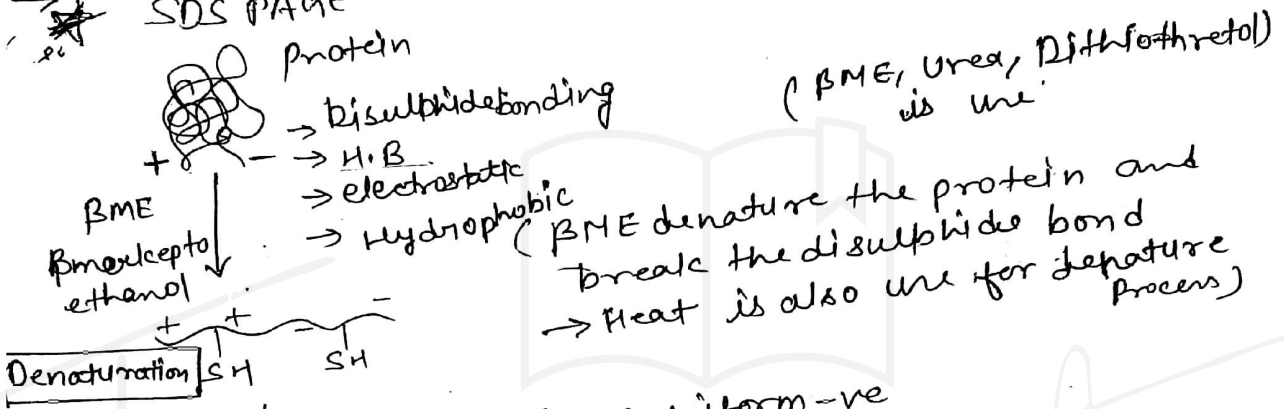 SDS PAGE
Protein
→ Disulphidebonding
→ H.B
→ electrostatic
→ Hydrophobic
+ −
(BME, Urea, Dithiothretol)
is use
BME
Bmerkcepto
ethanol
(BME denature the protein and
break the disulphide bond
→ Heat is also use for denature
Process)
+ + − −
SH SH
Denaturation
uniform -ve